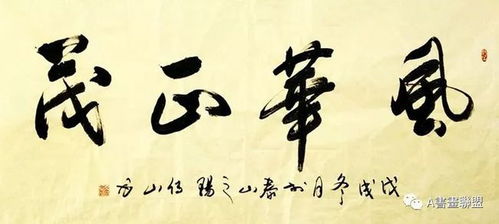 風華正茂
戊戌冬月於泰山之陽 任山
A書畫聯盟